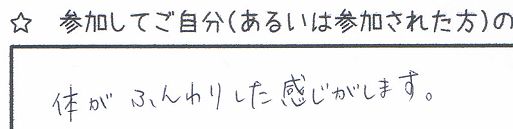 ☆ 参加してご自分(あるいは参加された方)の
体がふんわりした感じがします。